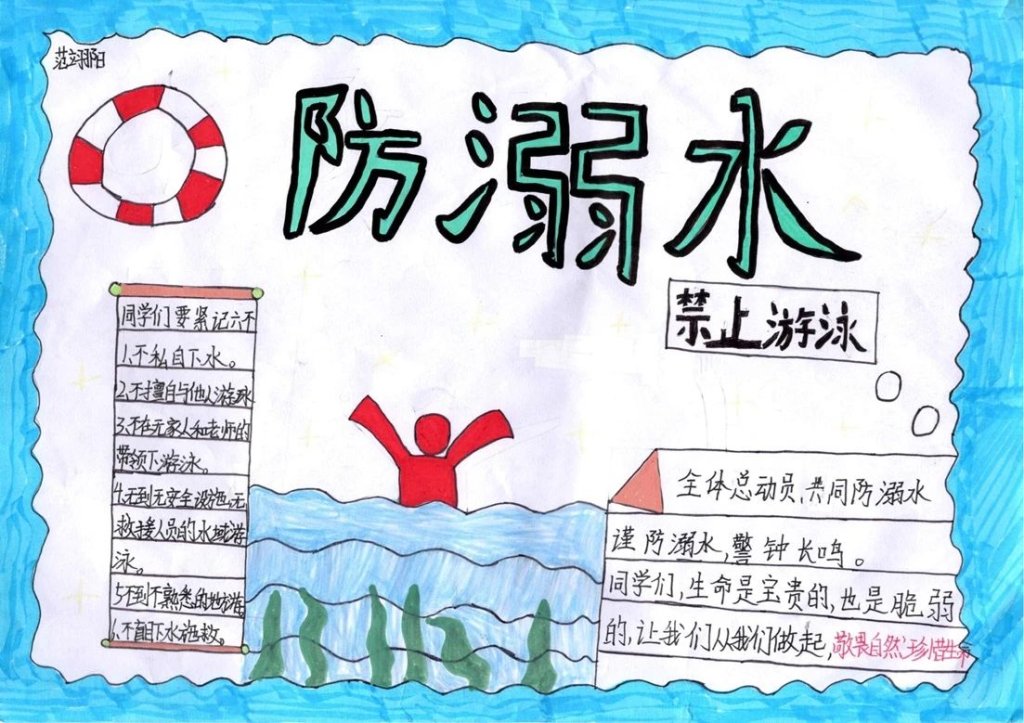 范翊阳
防溺水
禁止游泳
同学们要紧记六不
1.不私自下水。
2.不擅自与他人游泳
3.不在无家人和老师的
带领下游泳。
4.不到无安全设施,无
救援人员的水域游
泳。
5不到不熟悉的地域游
6.不盲目下水施救。
全体总动员,共同防溺水
谨防溺水,警钟长鸣。
同学们,生命是宝贵的,也是脆弱
的,让我们从我们做起,敬畏自然,珍惜生命